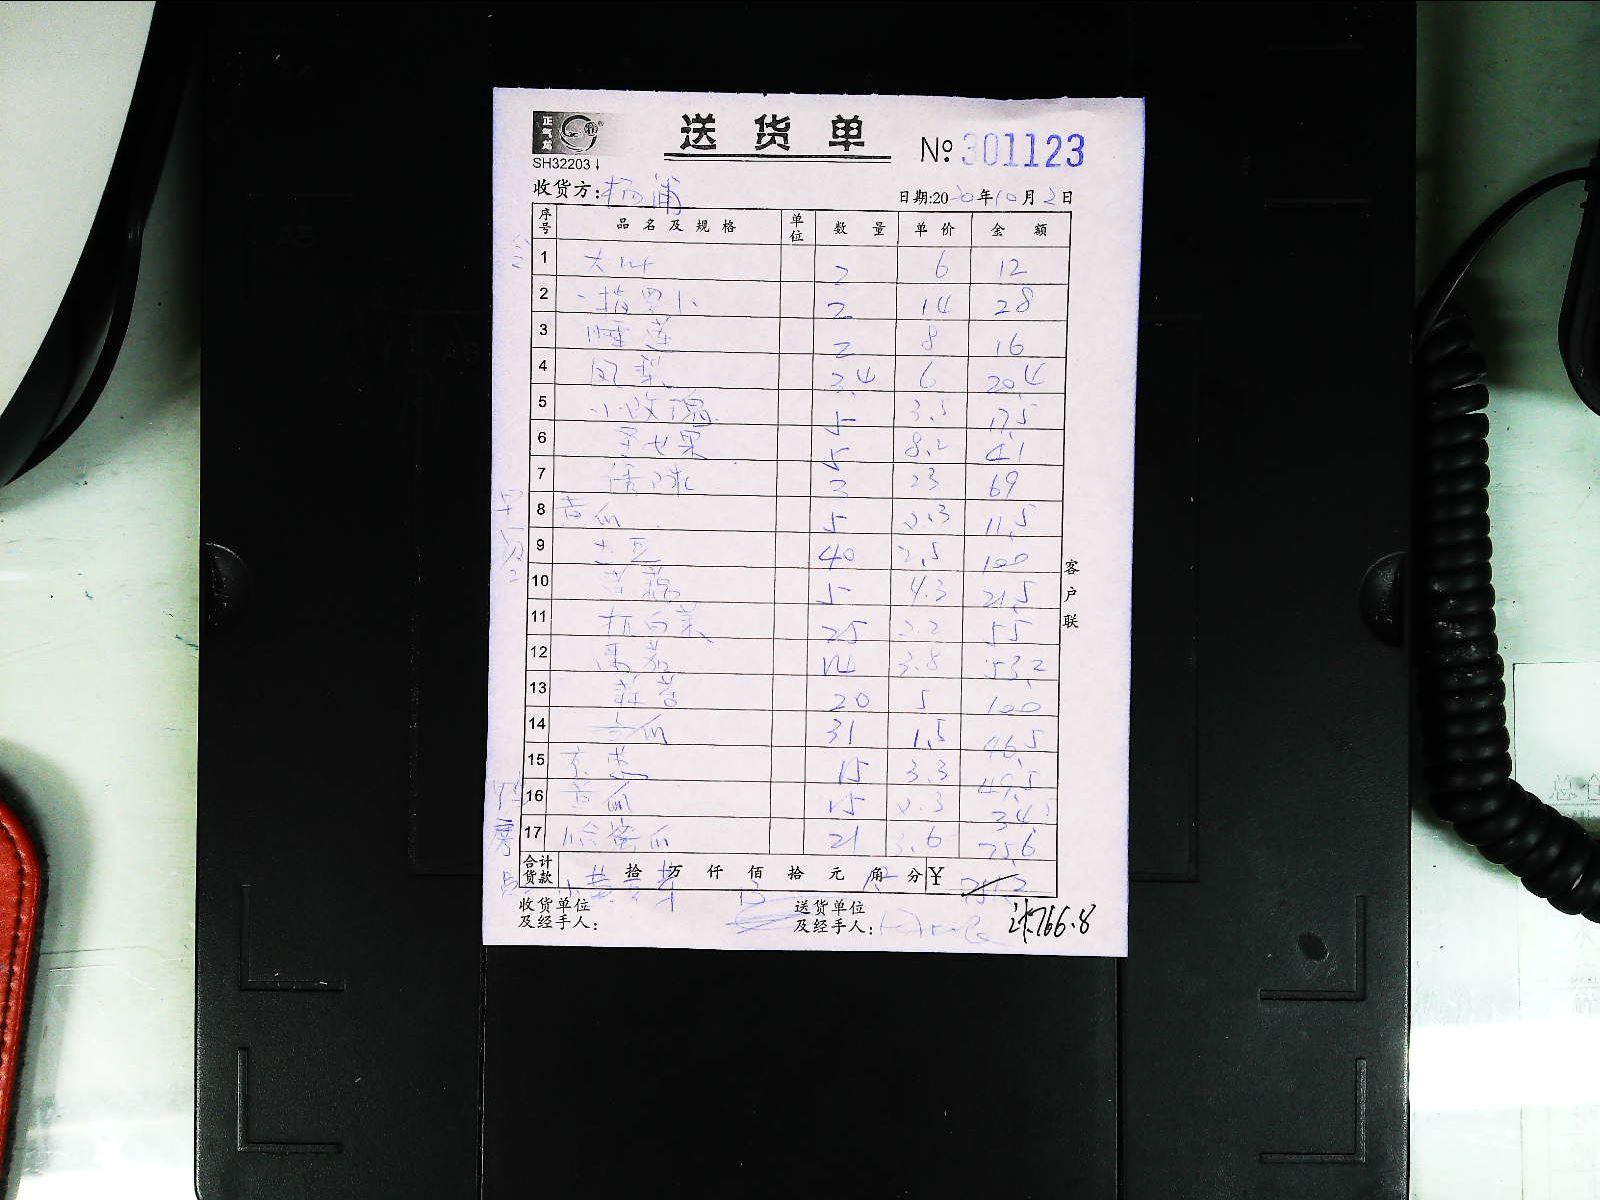 正气苑
送货单
SH32203 № 301123
收货方: 杨浦 日期:2020年10月2日
序号 品名及规格 单位 数量 单价 金额
1 大叶 2 6 12
2 手指萝卜 2 14 28
3 睡莲 2 8 16
4 凤梨 3.4 6 20.4
5 小玫瑰 5 3.5 17.5
6 圣女果 5 8.2 41
7 3 23 69
8 黄瓜 5 2.3 11.5
9 土豆 40 2.5 100
10 5 4.3 21.5
11 杭白菜 25 2.2 55
12 番茄 14 3.8 53.2
13 20 5 100
14 冬瓜 31 1.5 46.5
15 京葱 15 3.3 49.5
16 黄瓜 15 2.3 34.5
17 哈密瓜 21 3.6 75.6
合计货款 拾 万 仟 佰 拾 元 角 分 ¥
收货单位及经手人: 送货单位及经手人: 计766.8
客户联